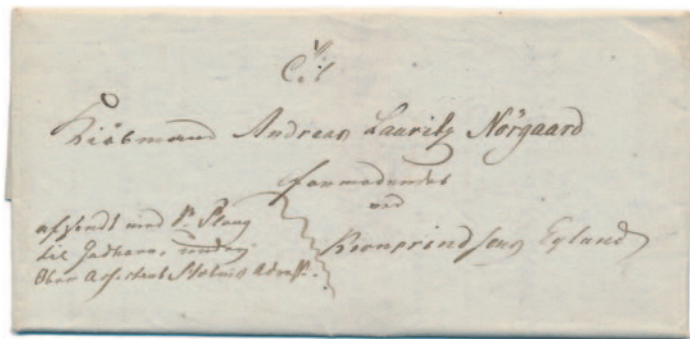 Til
Kiöbmand Andreas Lauritz Nörgaard
formodendes
ved
Kronprindsens Eyland
afsendt med Sr. Ploug
til Godhavn, under
Over Assistent Holms Adresse.